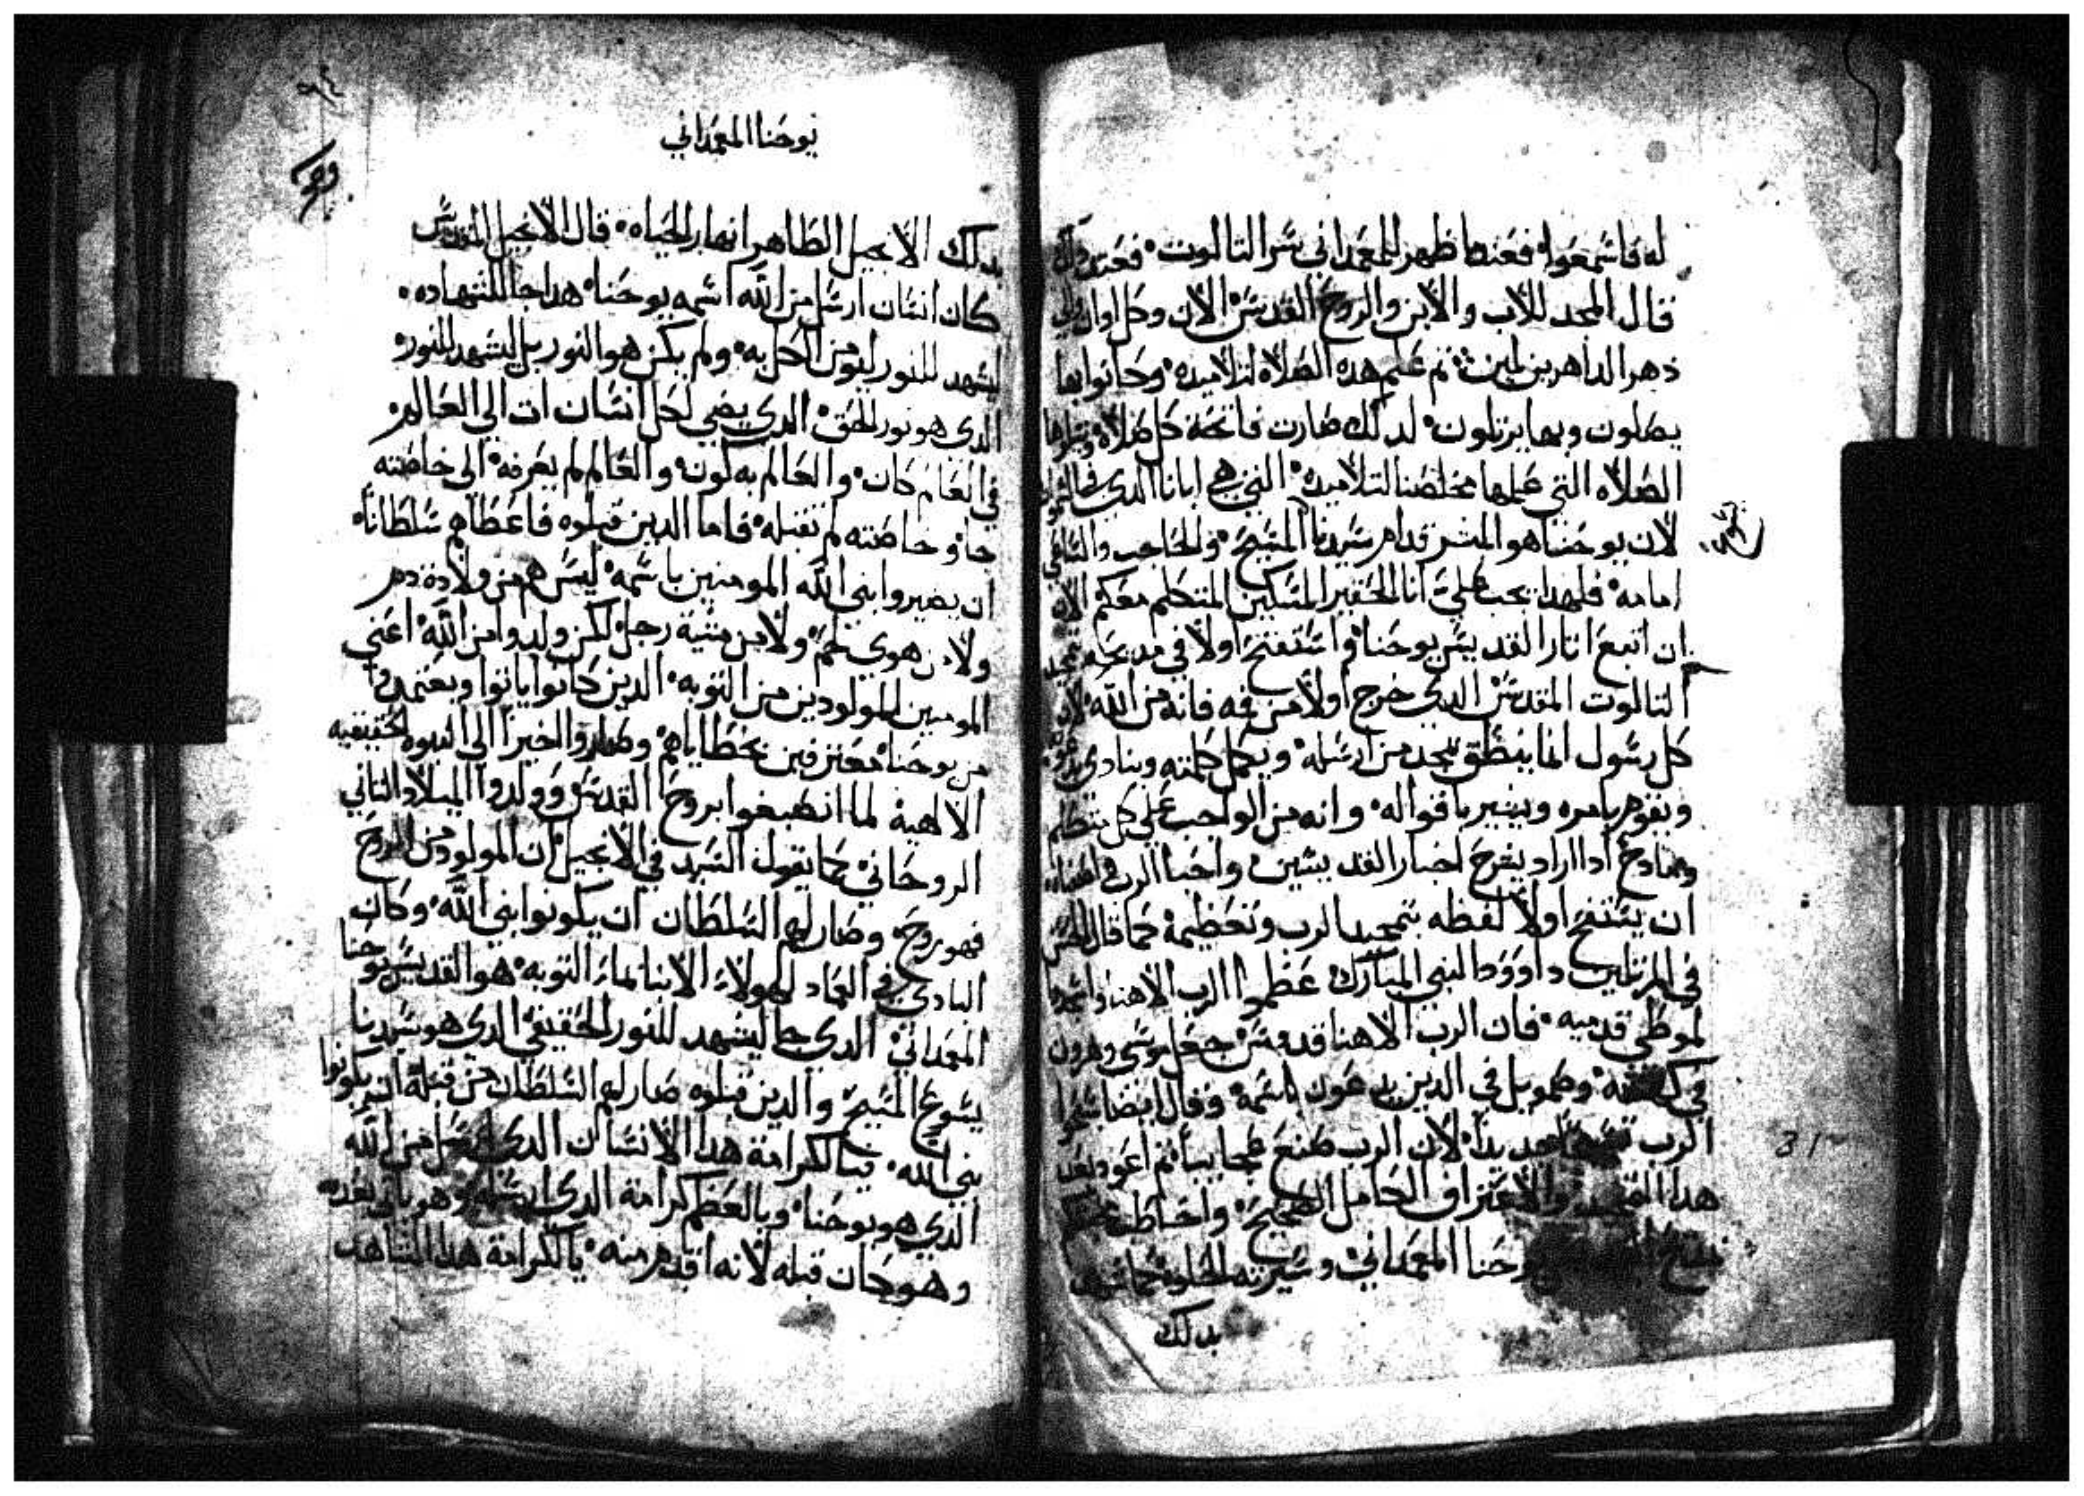 له فاسمعوا فعندها ظهر للمعمداني سر التالوت فعند
قال المجد للاب والابن والروح القدس الان وكل اوان والي
دهر الداهرين امين ثم علم هده الصلاه لتلاميده وكانوا بها
يصلون وبها يرتلون لدلك صارت فاتحة كل صلاة
الصلاه التي عملها مخلصنا لتلاميده التي هي ابانا الدي في
لان يوحنا هو المبشر قدام سيدنا المسيح والحاجب والساعي
امامه فلهدا يجب علي انا الحقير المسكين المتكلم معكم الان
ان اتبع اتار القديس يوحنا واستفتح اولا في مديحه
التالوت المقدس الدي خرج اولا من فمه فانه من الله لان
كل رسول انما ينطق بمجد من ارسله ويكمل كلمته وينادي
ويفوه بامره ويشير باقواله وانه من الواجب علي كل متكلم
ومادح ادا اراد يشرح اخبار القديسين واحبا الرب
ان يستفتح اولا لفظه بتمجيد الرب وتعظيمه كما قال
في المرتلين داوود النبي المبارك عظموا الرب الاهنا واسجدوا
لموطي قدميه فان الرب الاهنا قدوس جعل موسي وهرون
في وصمويل في الدين يدعون باسمه وقال ايضا سبحوا
الرب جديدا لان الرب صنع عجايبا تم اعود بعد
هدا والاعتراف الكامل الصحيح واخاطب
يوحنا المعمداني وسيرته الحلوة كما شهد
بدلك
31
يوحنا المعمداني
بدلك الانجيل الطاهر انهار الحياه قال الانجيل المقدس
كان انسان ارسل من الله اسمه يوحنا هدا جا للشهاده
ليشهد للنور ليومن الكل به ولم يكن هو النور بل ليشهد للنور
الدي هو نور الحق الدي يضي لكل انسان ات الي العالم
في العالم كان والعالم به كون والعالم لم يعرفه الى خاصته
جا وخاصته لم تقبله فاما الدين قبلوه فاعطاهم سلطانا
ان يصيروا بني الله المومنين باسمه ليس هم من ولادة دم
ولا من هوي لحم ولا من مشية رجل لكن ولدوا من الله اعني
المومنين المولودين من التوبه الدين كانوا ياتوا ويعتمدوا
من يوحنا معترفين بخطاياهم وصاروا اخيرا الي البنوه الحقيقيه
الالهية لما انصبغوا بروح القدس وولدوا الميلاد التاني
الروحاني كما يقول السيد في الانجيل ان المولود من الروح
فهو روح وصار لهم السلطان ان يكونوا بني الله وكان
البادي في العماد لهولاء الابنا لماء التوبه هو القديس يوحنا
المعمداني الدي جا ليشهد للنور الحقيقي الدي هو سيدنا
يسوع المسيح والدين قبلوه صار لهم السلطان من قبله ان يكونوا
بني الله فيا لكرامة هدا الانسان الدي ارسل من الله
الدي هو يوحنا ويا لعظم كرامة الدي ارسله وهو ياتي بعده
وهو كان قبله لانه اقدم منه يا لكرامة هدا الشاهد